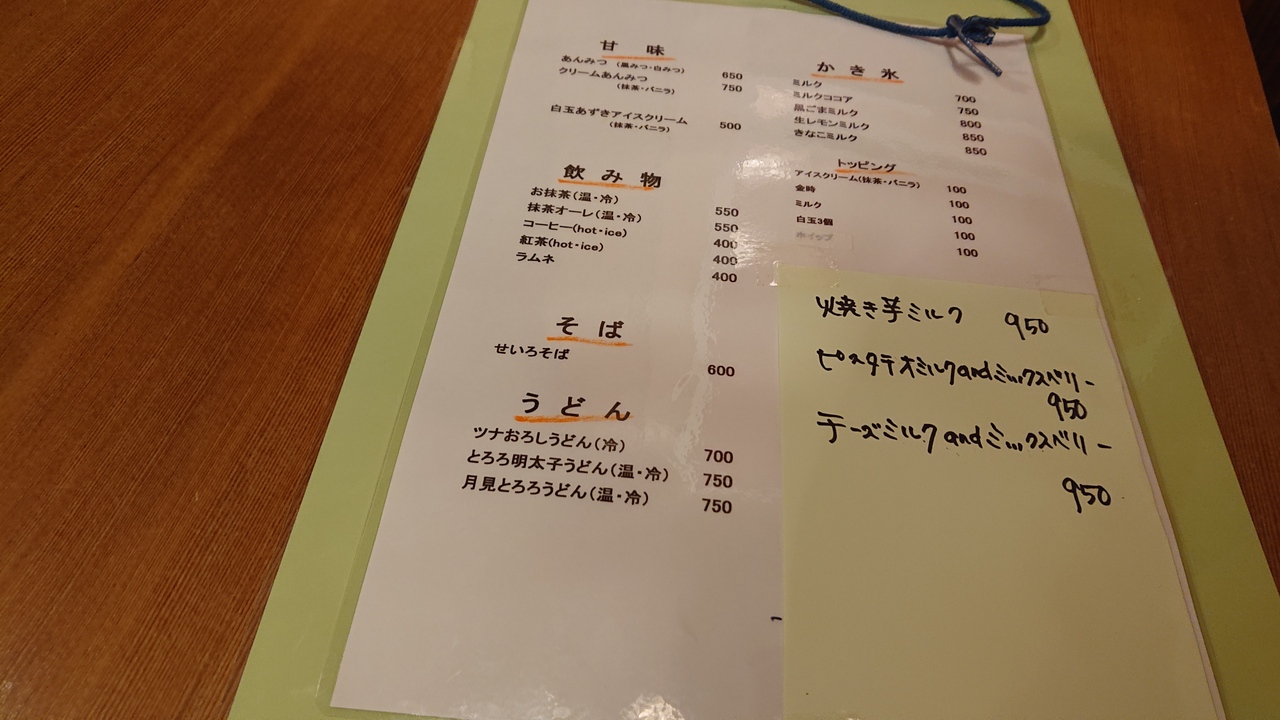 甘味
あんみつ (黒みつ・白みつ) 650
クリームあんみつ 750
(抹茶・バニラ)
白玉あずきアイスクリーム 500
(抹茶・バニラ)
飲み物
お抹茶(温・冷) 550
抹茶オーレ(温・冷) 550
コーヒー(hot・ice) 400
紅茶(hot・ice) 400
ラムネ 400
そば
せいろそば 600
うどん
ツナおろしうどん(冷) 700
とろろ明太子うどん(温・冷) 750
月見とろろうどん(温・冷) 750
かき氷
ミルク 700
ミルクココア 750
黒ごまミルク 800
生レモンミルク 850
きなこミルク 850
トッピング
アイスクリーム(抹茶・バニラ) 100
金時 100
ミルク 100
白玉3個 100
ホイップ 100
焼き芋ミルク 950
ピスタチオミルクandミックスベリー
950
チーズミルクandミックスベリー
950